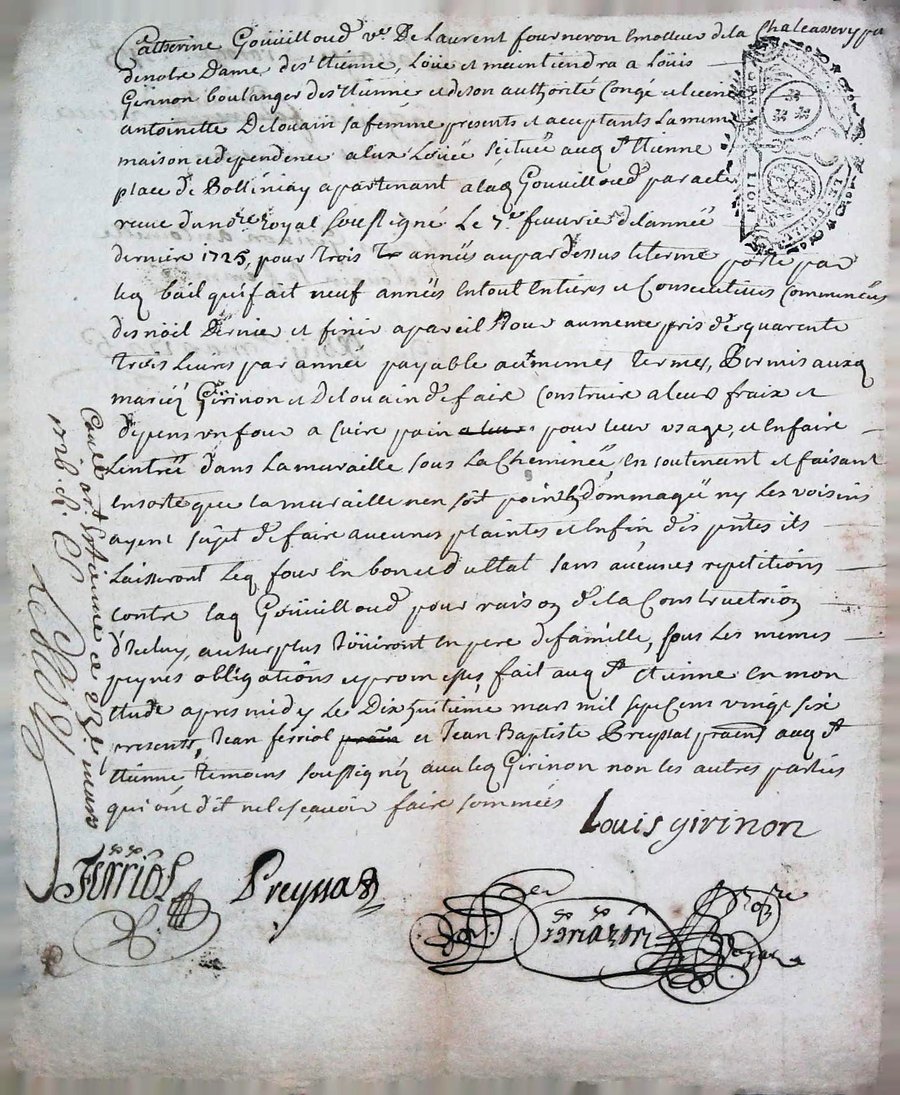 Catherine Goüilloud v.e De Laurent fourneron Emolleur de la Chaleassery
de notre Dame de st Etienne, Loue et maintiendra a Loüis
Girinon boulanger de st Etienne et de son authorité Congé et Licence
antoinette Delouain sa femme presents et acceptants La meme
maison et dependence a eux Loüée scituée aud st Etienne
place de apartenant a lad Goüilloud par acte
receu du nore Royal soussigné Le 7e feuurier de l'année
derniere 1725, pour trois années au par dessus le terme porté par
led bail qui fait neuf années en tout Entieres et Consecutives Commencées
des noël Dernier et finir a pareil Jour au meme pris de quarente
trois Liures par année payable aux memes termes, Permis auxd
mariéz Girinon et Delouain de faire Construire a leurs fraix et
dépens un four a Cuire pain pour leur usage, et En faire
L'entrée dans La muraille sous La Cheminée, En soutenant et faisant
En sorte que La muraille n'en soit point Endommagée ny Les Voisins
ayent sujet de faire aucunes plaintes et Enfin des pntes ils
Laisseront Led four En bon et d'Estat sans aucunes repetitions
Contre lad Goüilloud pour raison de la Construction
d'Iceluy, au surplus Joüiront En pere de famille, sous Les memes
peynes obligations et promesses, fait aud st Etienne En mon
Etude apres midy Le Dix huitieme mars mil sept Cent vingt six
presents, Jean ferriol et Jean Baptiste Preynat aud st
Etienne temoins soussignéz avec led Girinon non les autres parties
qui ont dit ne le sçavoir faire sommées
Louis girinon
Ferriol
Preynat
Contrôllé a st Etienne ce mars
1726
LION